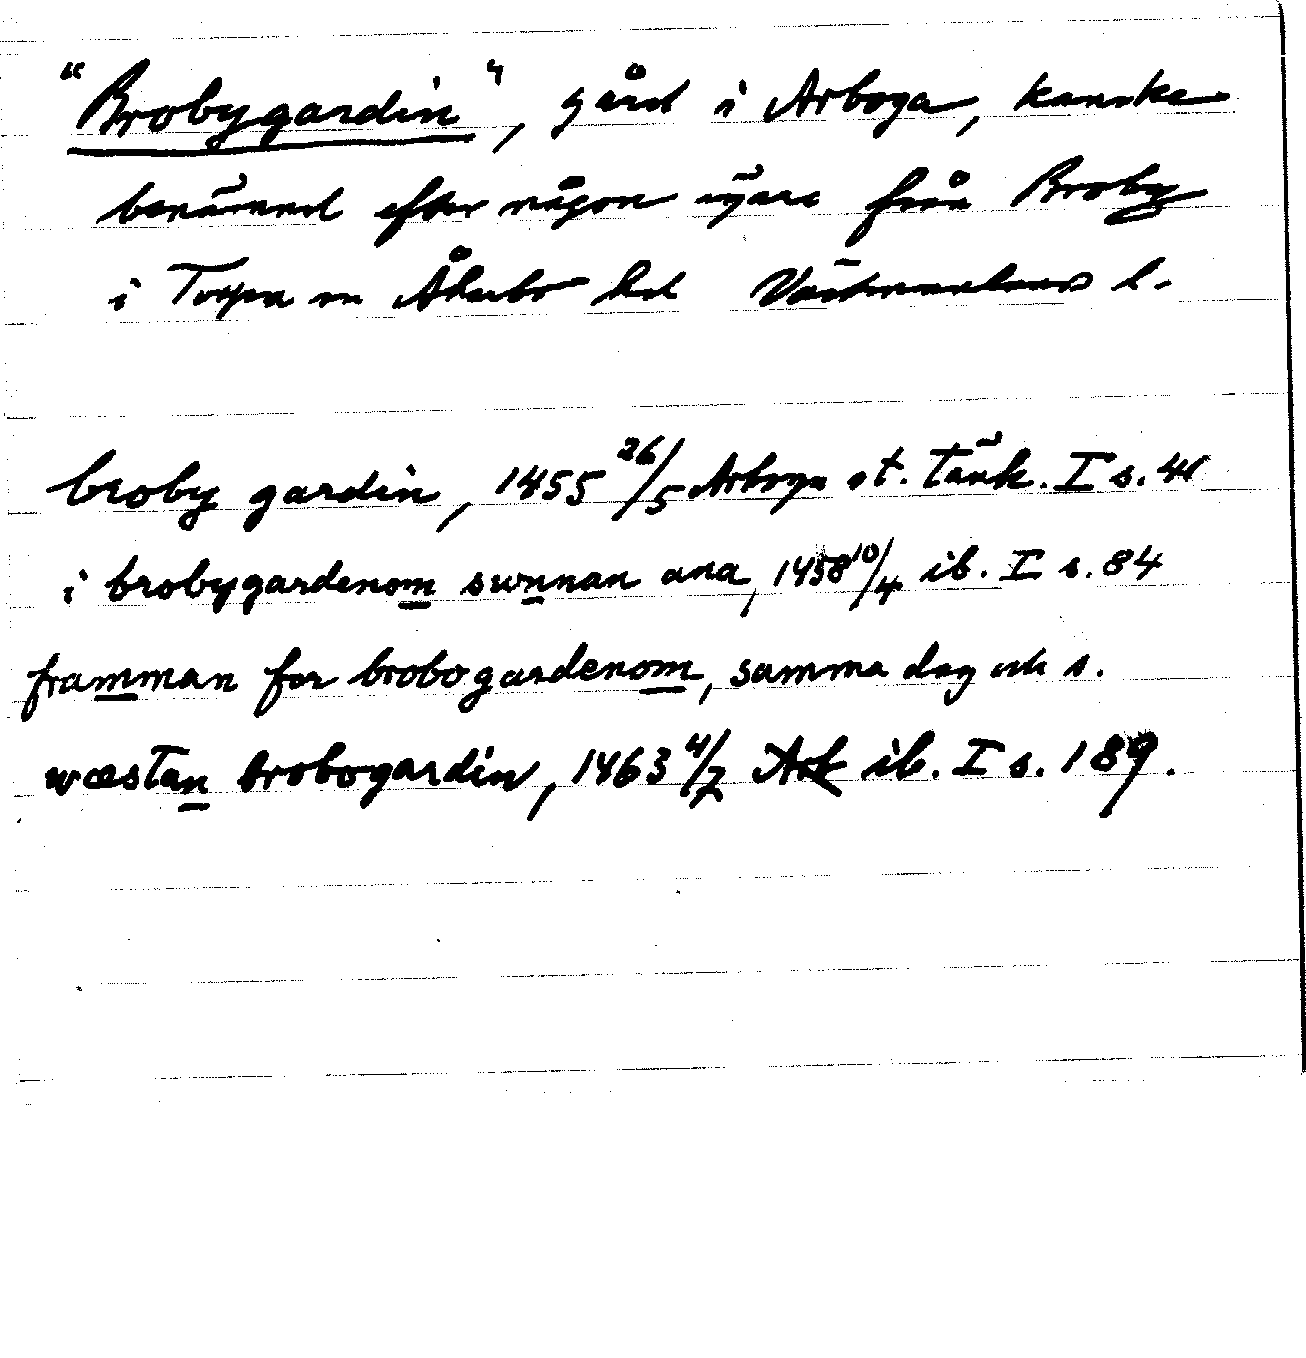 "Brobygardin", gård i Arboga, kanske
benämnd efter någon ägare från Broby
i Torpa sn Åkerbo hd Västmanlands l.
broby gardin, 1455 26/5 Arboga st. tänk. I s. 41
i brobygardenom sunnan ana, 1458 10/4 ib. I s. 84
framman for brobogardenom, samma dag och s.
wæstan brobogardin, 1463 4/7 ib. I s. 189.